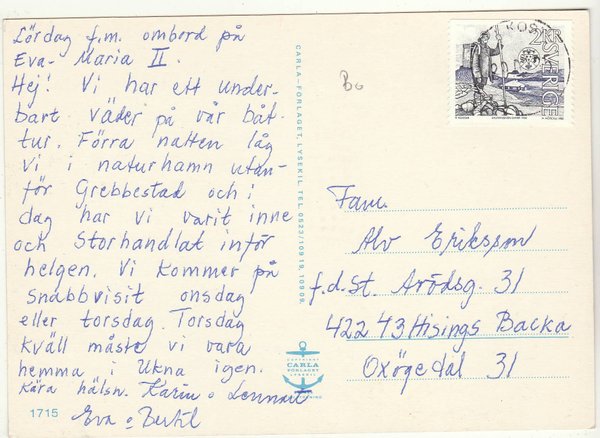 Lördag f.m. ombord på
Eva-Maria II.
Hej! Vi har ett under-
bart väder på vår båt-
tur. Förra natten låg
vi i naturhamn utan-
för Grebbestad och i
dag har vi varit inne
och storhandlat inför
helgen. Vi kommer på
snabbvisit onsdag
eller torsdag. Torsdag
kväll måste vi vara
hemma i Ukna igen.
Kära hälsn. Karin o Lennart
Eva o Bertil
1715
CARLA-FÖRLAGET, LYSEKIL. TEL. 0523/109 19, 109 09.
COPYRIGHT
CARLA
FÖRLAGET
LYSEKIL
Bo
2 KR
SVERIGE
Fam.
Alv Eriksson
f.d.st. Arödsg. 31
422 43 Hisings Backa
Oxögedal 31